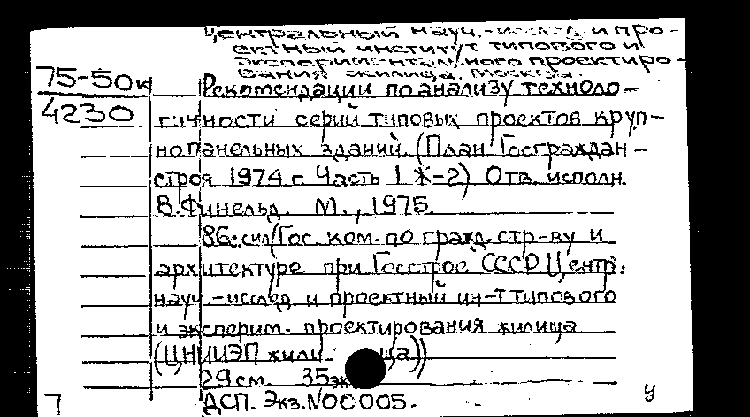 Центральный науч.-исслед. и про-
ектный институт типового и
экспериментального проектиро-
вания жилища. Москва.
75-50к
4230
Рекомендации по анализу техноло-
гичности серий типовых проектов круп-
нопанельных зданий. (План Госграждан-
строя 1974 г. Часть 1 Ж-2) Отв. исполн.
В. Финельд. М., 1975.
86с. ил (Гос. ком. по гражд. стр-ву и
архитектуре при Госстрое СССР Центр.
науч.-исслед. и проектный ин-т типового
и эксперим. проектирования жилища
(ЦНИИЭП жили- ща))
29 см. 35 эк
ДСП. Экз. №00005.
7
у